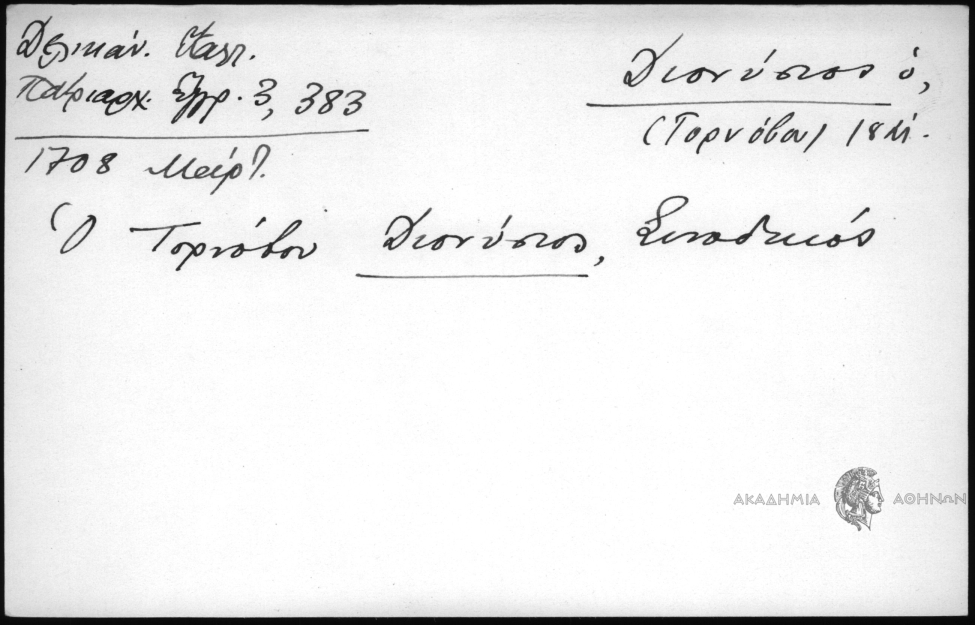 Δελικάν. Καλλ.
Πατριαρχ. Έγγρ. 3, 383
1708 Μάρτ.
Διονύσιος ὁ,
(Τορνόβου) 18 αἰ.
Ὁ Τορνόβου Διονύσιος, Συνοδικός
ΑΚΑΔΗΜΙΑ ΑΘΗΝΩΝ